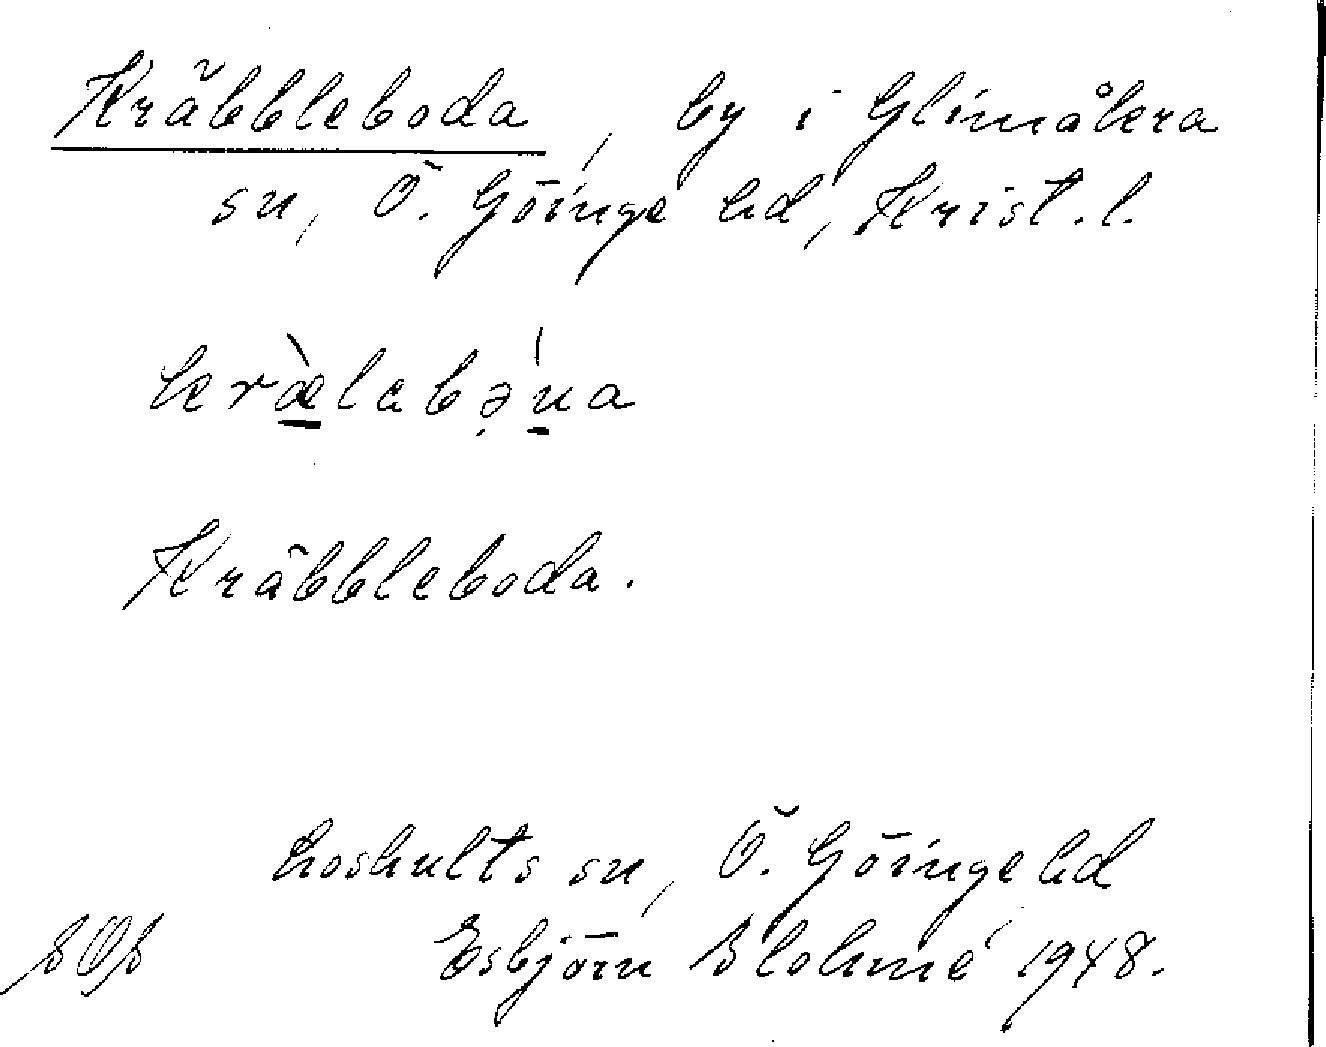 Kräbbleboda, by i Glimåkra
sn, Ö. Göinge hd, Krist. l.
kræ̀labə́na
Kräbbleboda.
Loshults sn, Ö. Göinge hd
Esbjörn Blohmé 1948.